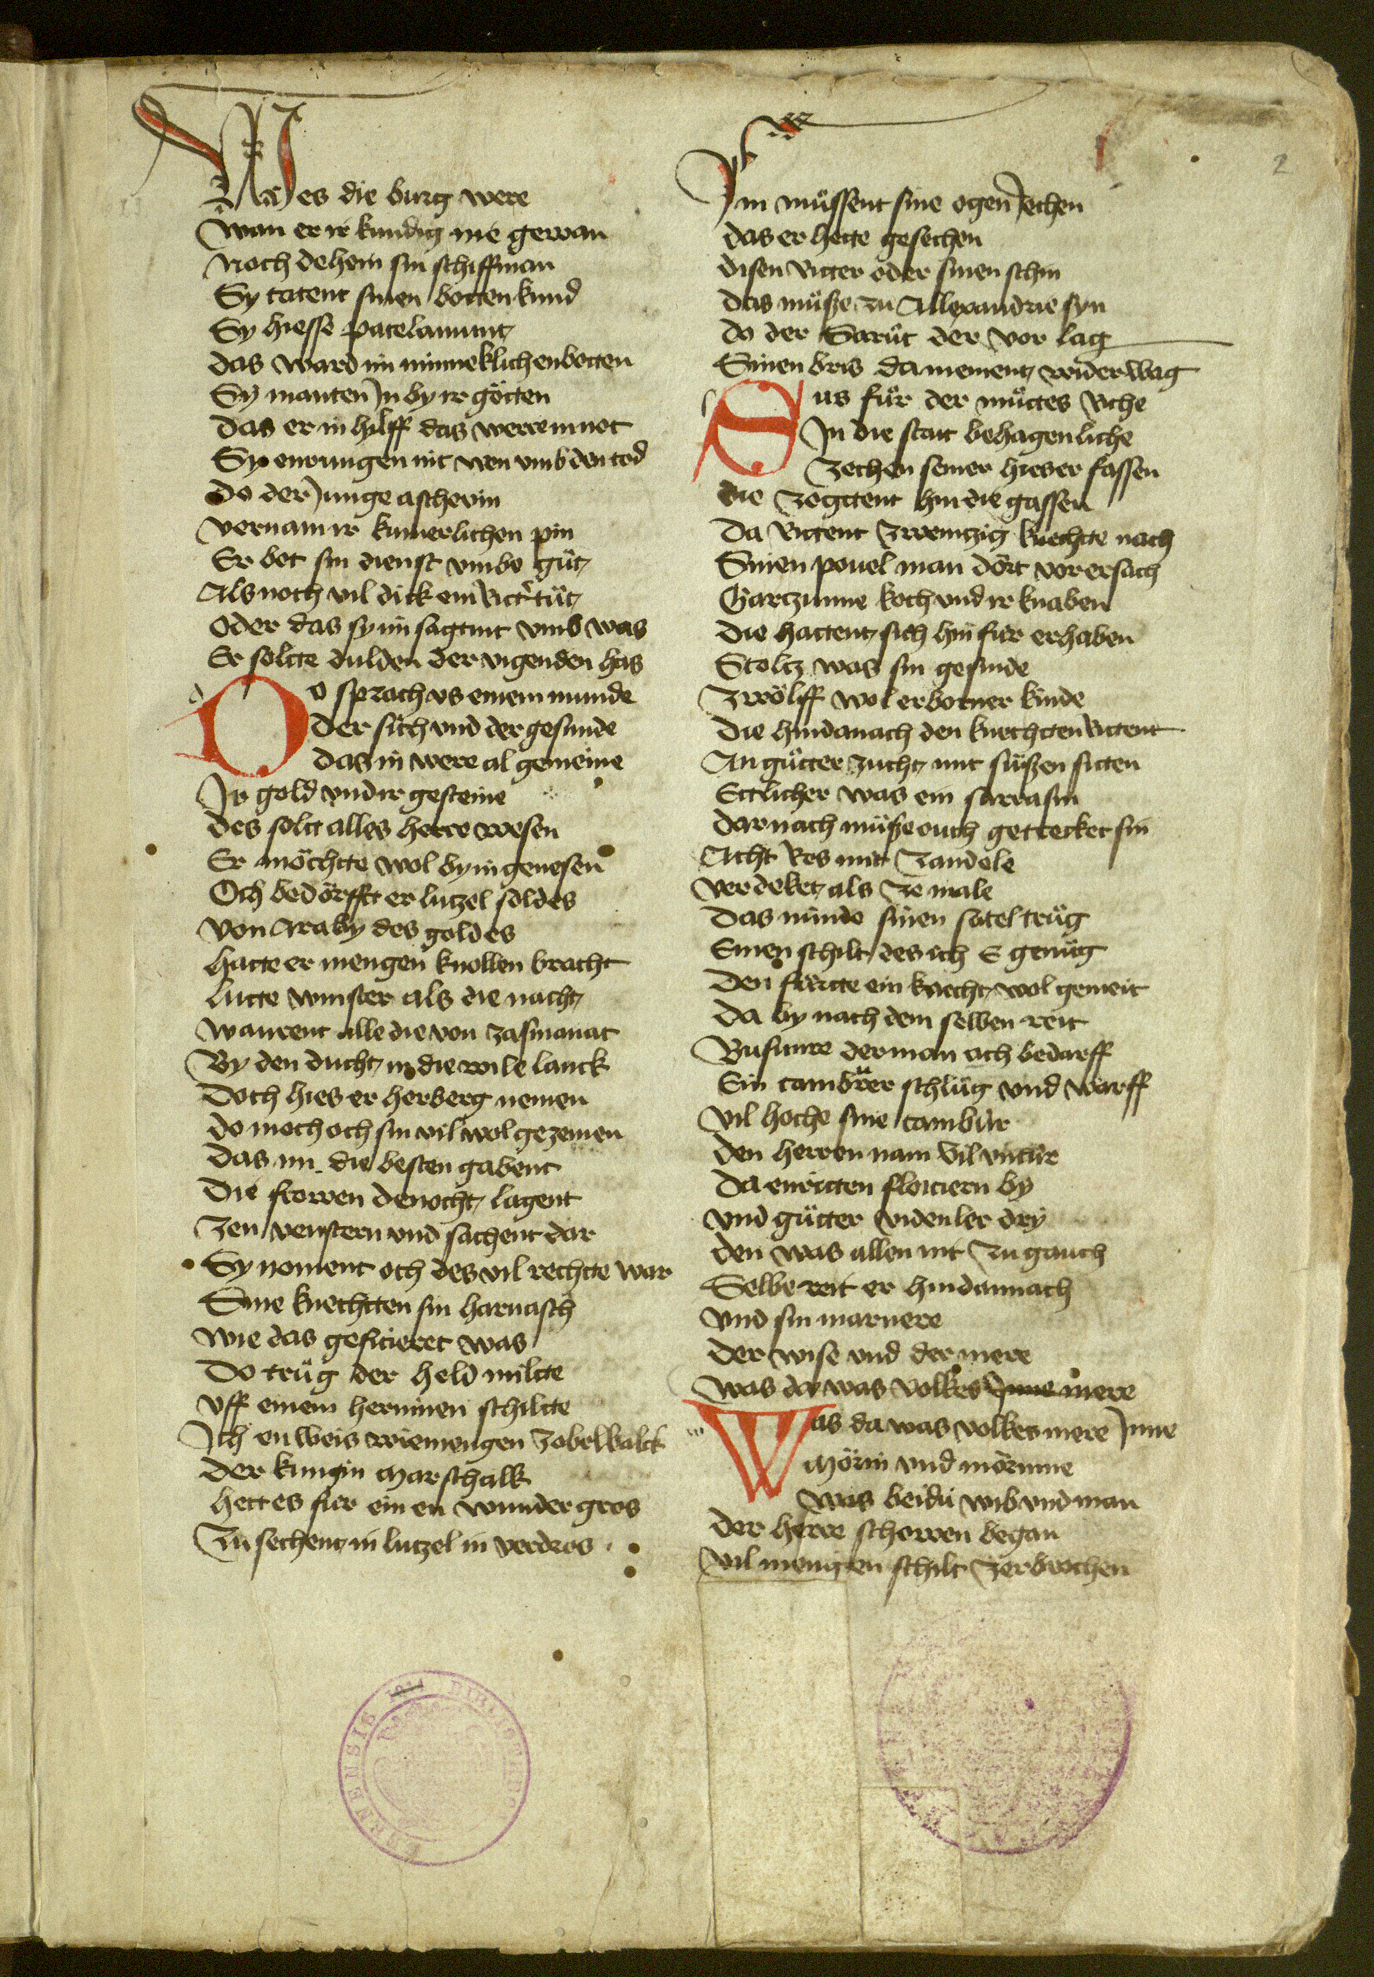 Wes die burg were
Wan er ir kundig nie gewan
Noch dehein sin schiffman
Sy tatent sinen botten kund
Sy hiesse patelamunt
das ward im minneklichen botten
Sy manten Jn by ir götten
das er in hilff das werre in not
Sy enrungen nit wen vmb den tod
do der Junge aschevin
vernam ir kumerlichen pin
Er bot sin dienst vmbe güt
Als noch vil dick ein Ritter tüt
Oder das sy im sagtint vmb was
Er soltte dulden der vigenden has
Do sprach vs einem munde
der sich vnd der gesunde
das in were al gemeine
Jr gold vnd ir gesteine
des solt alles herre wesen
Er möchtte wol by in genesen
Och bedörfft er lutzel soldes
Von Araby des goldes
hatte er mengen knollen bracht
Lutte vinster als die nacht
warent alle die von zasmanat
By den ducht in die wile lanck
doch hies er herberg nemen
do moch och sin vil wol gezemen
das im die besten gabent
die frowen denocht lagent
Zen venstern vnd sachent dar
Sy noment och des vil rechtte war
Sine knechtten sin harnasch
wie das gefitieret was
do trüg der held miltte
vff einem herminen schiltte
Jch en weis wie mengen zobelbalck
der kungin marschalk
hett es fur ein en wunder gros
Zu sechent in lutzel in verdros
Jm müssent sine ogen Jechen
das er hette gesechen
disen Ritter oder sinen schin
das müsze zu Allexandrie syn
do der Barüt der vor lag
Sinen bris da nement wider wag
Sus für der müttes Riche
Jn die statt behagenliche
Zechen semer hies er fassen
die zogttent hin die gassen
da Rittent zwentzig knechtte nach
Sinen pouel man dört vor ersach
Garczunne koch vnd ir knaben
die hattent sich hin für erhaben
Stoltz was sin gesinde
Zwölff wol erborner kinde
die hindanach den knechtten Rittent
An gütter zucht mit süszen sitten
Ettlicher was ein sarrasin
dar nach müsze ouch gettecket sin
Acht Ros mit zandele
verdeket als ze male
das nunde sinen satel trüg
Einen schilt des ich E genüg
den fürtte ein knecht wol gemeit
da by nach dem selben reit
Busunre der man och bedarff
Ein tambürer schlüg vnd warff
vil hoche sine tambür
den herren nam vil vntür
da enritten floitiern by
vnd gütter videnler dry
den was allen nit zu gauch
Selbe reit er hindannach
vnd sin marnere
der wise vnd der mere
was da was volkes Jnne mere
Was da was volkes mere Jnne
Mörin vnd mörinne
was beidü wib vnd man
der herre schowen began
vil mengen schilt zerbrochen